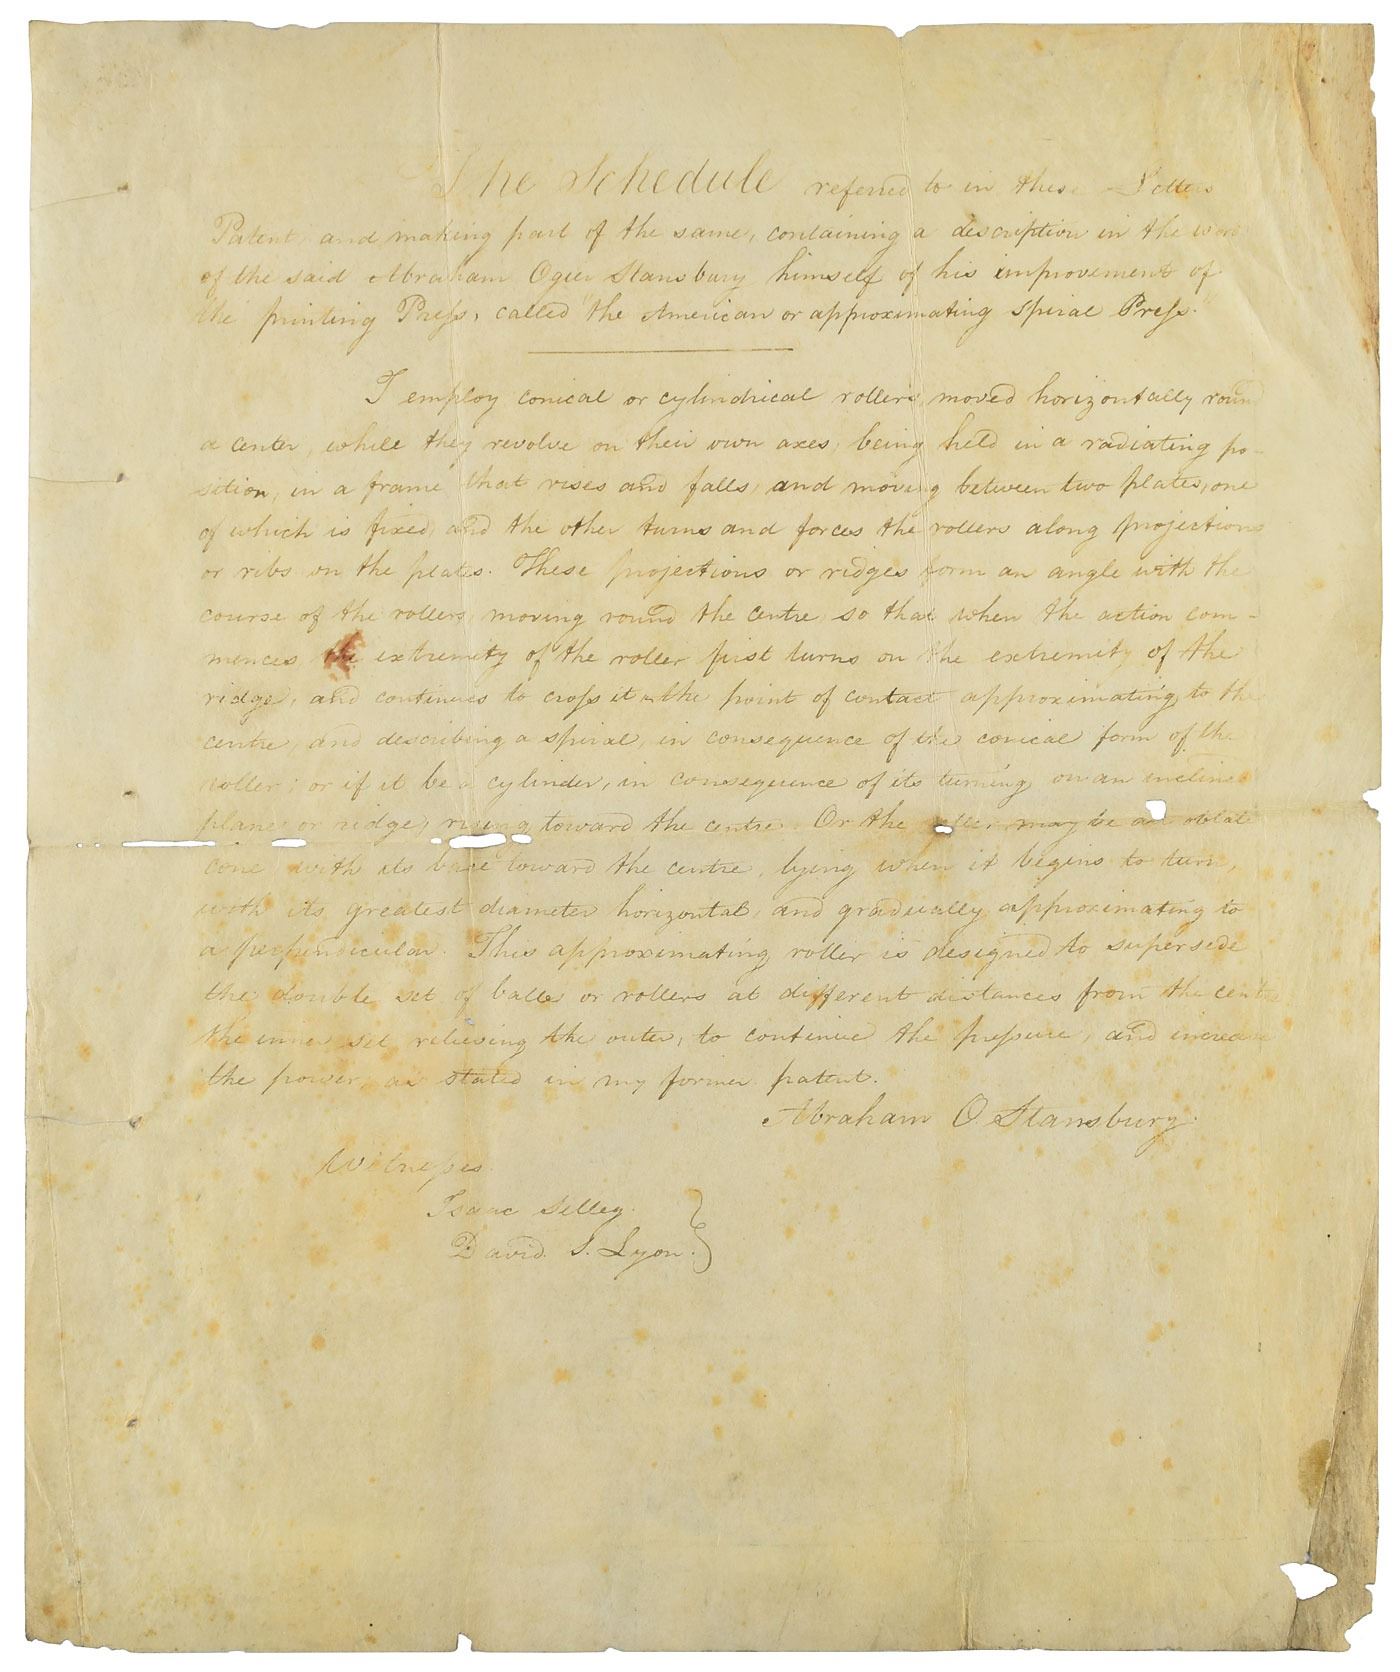 The Schedule referred to in these Letters
Patent, and making part of the same, containing a description in the words
of the said Abraham Ogier Stansbury himself of his improvement of
the printing Press, called "the American or approximating spiral Press."
I employ conical or cylindrical rollers, moved horizontally round
a center, while they revolve on their own axes, being held in a radiating po-
sition, in a frame that rises and falls, and moving between two plates, one
of which is fixed, and the other turns and forces the rollers along projections
or ribs on the plates. These projections or ridges form an angle with the
course of the rollers, moving round the centre, so that when the action com-
mences the extremity of the roller first turns on the extremity of the
ridge, and continues to cross it - the point of contact approximating to the
centre, and describing a spiral, in consequence of the conical form of the
roller; or if it be a cylinder, in consequence of its turning on an inclined
plane or ridge, rising toward the centre. Or the roller may be an oblate
cone with its base toward the centre, lying when it begins to turn,
with its greatest diameter horizontal, and gradually approximating to
a perpendicular. This approximating roller is designed to supersede
the double set of balls or rollers at different distances from the centre
the inner set relieving the outer, to continue the pressure, and increase
the power, as stated in my former patent.
Abraham O. Stansbury.
Witnesses.
Isaac Silley.
David S. Lyon.